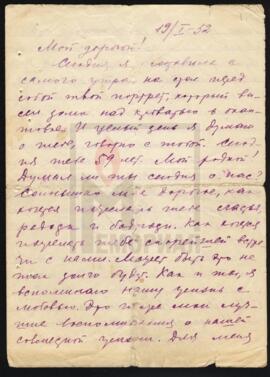 19/I-52
Мой дорогой!
Сегодня я поставила с
самого утра на стол перед
собой твой портрет, который ви-
сел дома над кроватью в
И целый день я думаю
о тебе, говорю с тобой. Сегод-
ня тебе 59 лет. Мой родной!
Думал ли ты сегодня о нас?
Слышишь ли дорогой, как
хочется пожелать тебе счастья,
радости и бодрости. Как хочется
пожелать тебе скорейшей встре-
чи с нами. Может быть это не
так долго будет. Как и ты, я
вспоминаю нашу жизнь с
любовью. Это и мои луч-
шие воспоминания о нашей
совместной жизни. Для меня